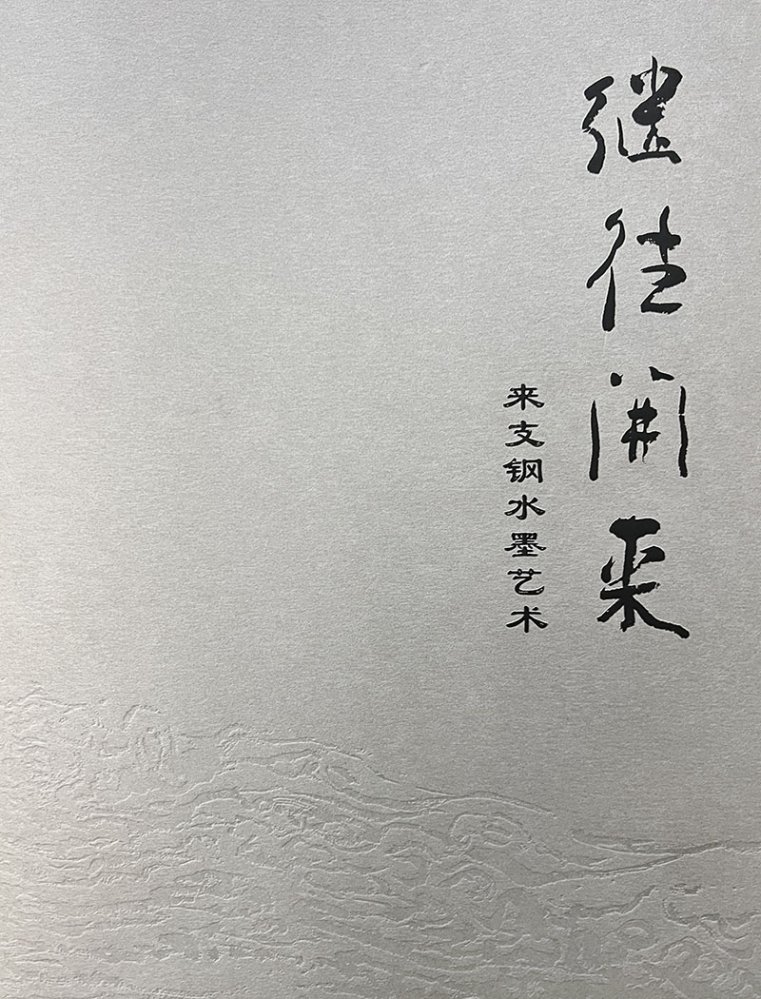 继往開来
来支钢水墨艺术